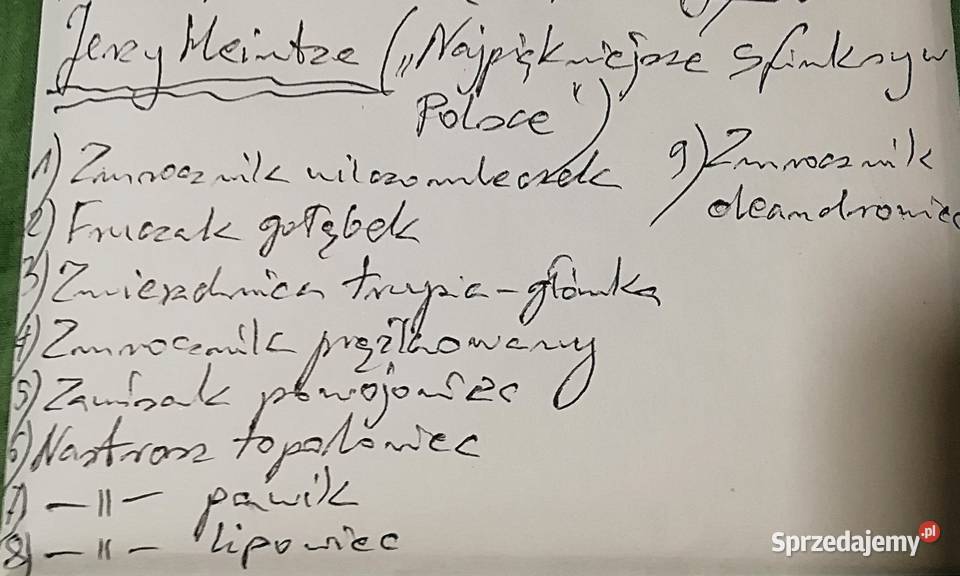 Jerzy Heintze („Najpiękniejsze sfinksy w
Polsce”)
1) Zmrocznik wilczomleczek
2) Fruczak gołąbek
3) Zmierzchnica trupia-główka
4) Zmrocznik prążkowany
5) Zawisak powojowiec
6) Nastrosz topolowiec
7) —"— pawik
8) —"— lipowiec
9) Zmrocznik
oleandrowiec
Sprzedajemy.pl